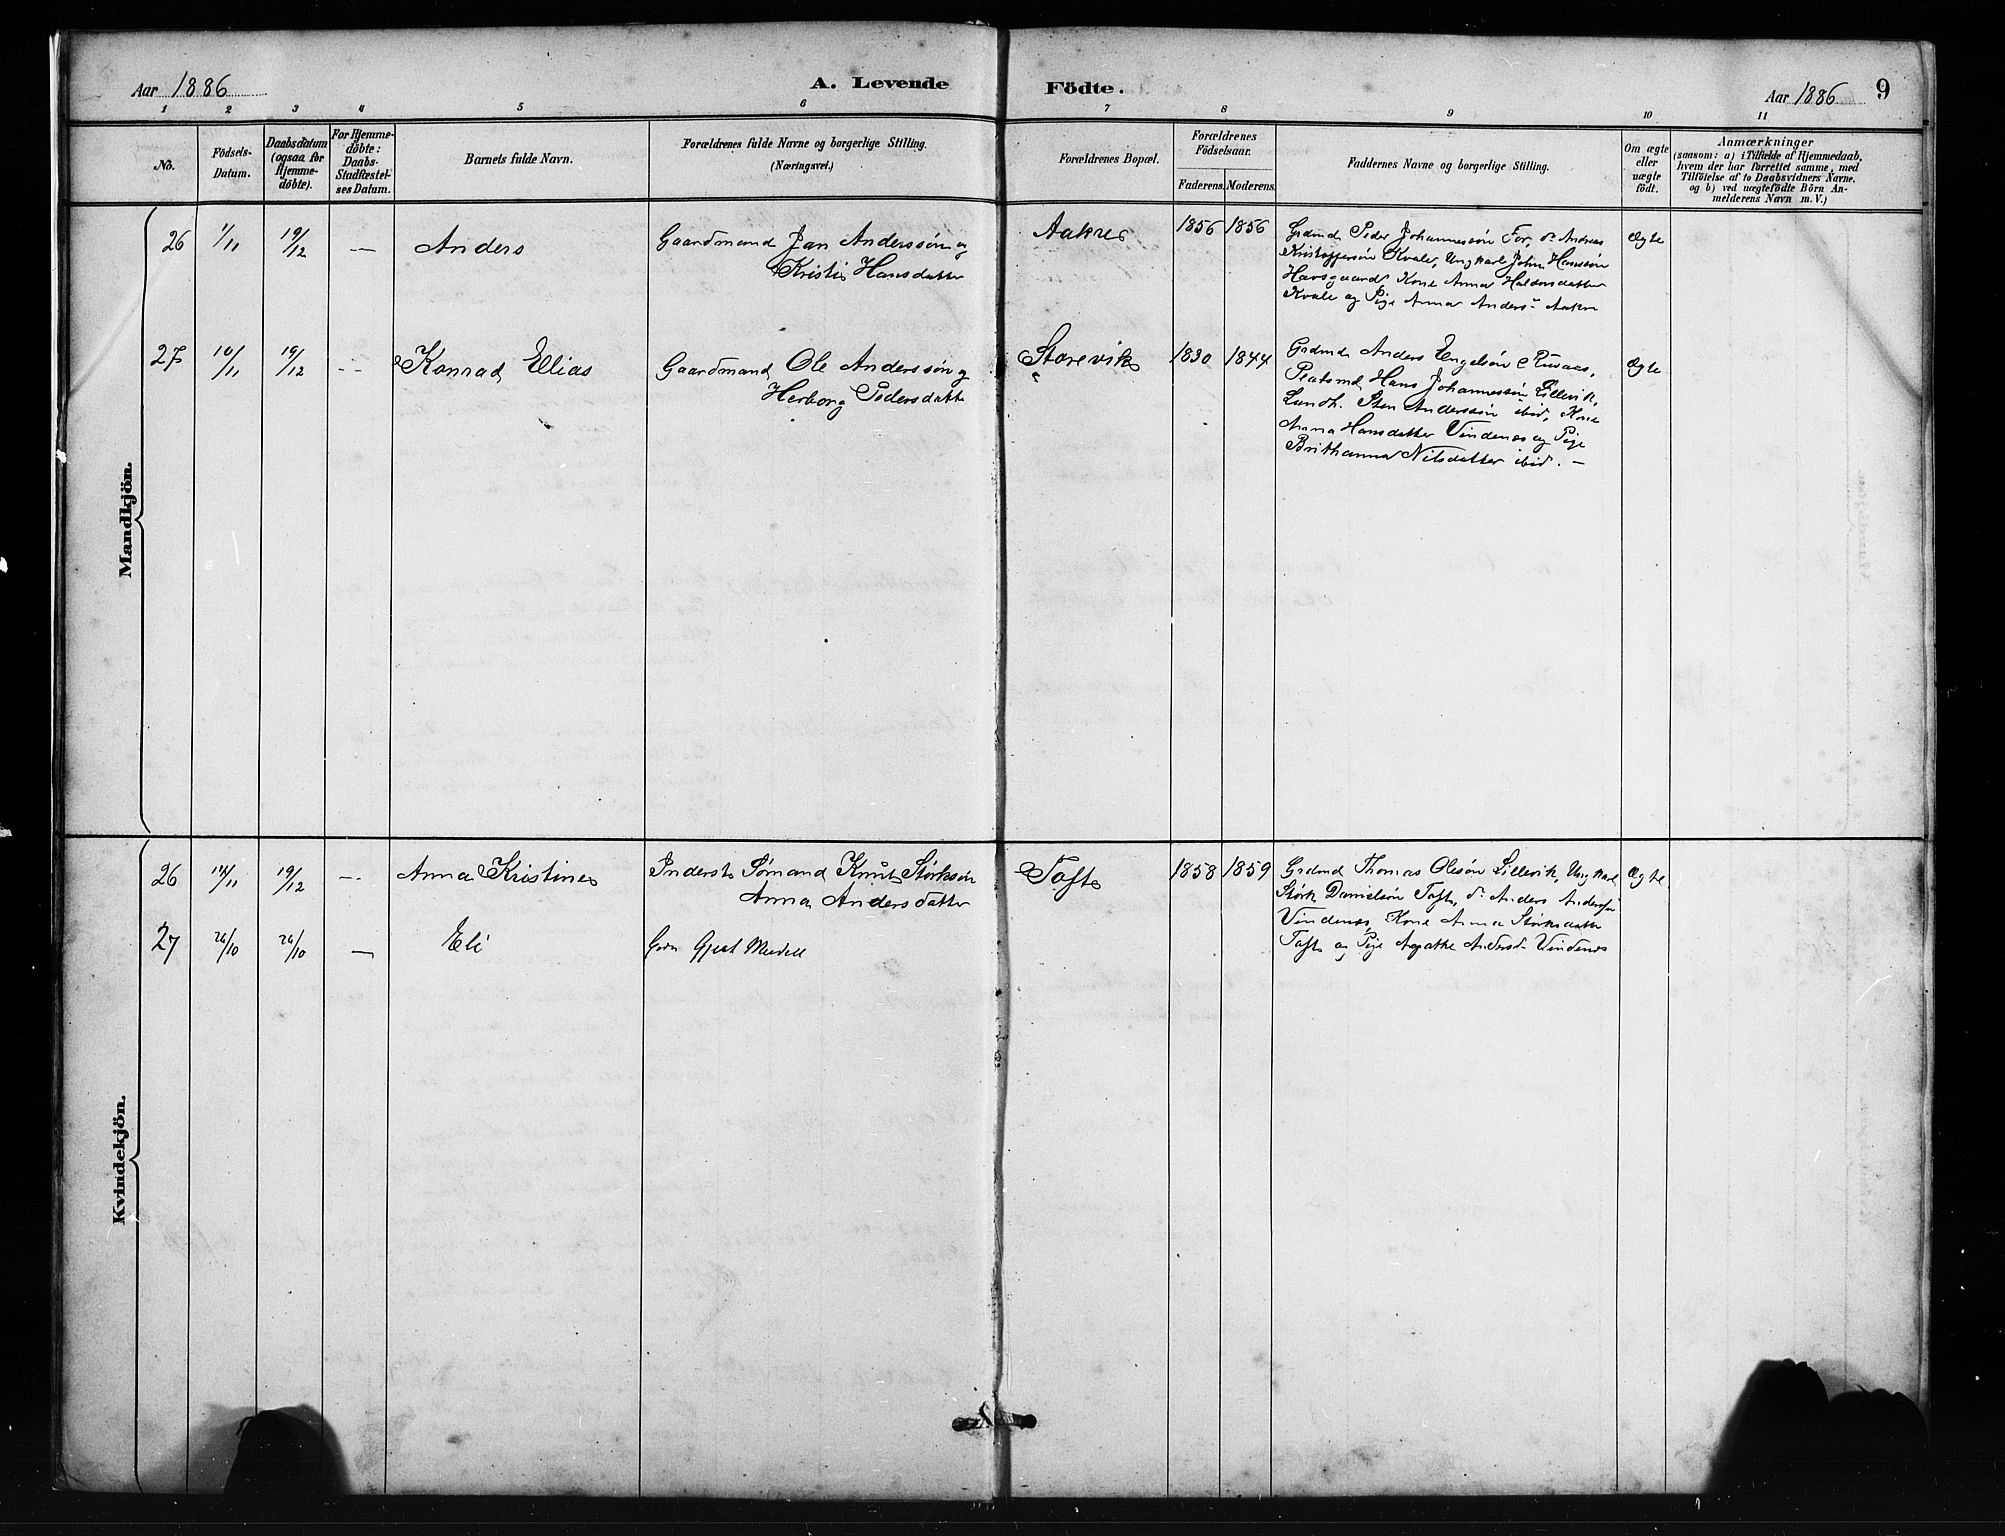 Aar 1886
A. Levende
Födte.
Aar 1886
9
1 2 3 4 5 6 7 8 9 10 11
No.
Födsels-
Datum.
Daabsdatum
(ogsaa for
Hjemme-
döbte).
For Hjemme-
döbte:
Daabs-
Stadfæstel-
ses Datum.
Barnets fulde Navn.
Forældrenes fulde Navne og borgerlige Stilling.
(Næringsvei.)
Forældrenes Bopæl.
Forældrenes
Födselsaar.
Faderens. Moderens.
Faddernes Navne og borgerlige Stilling.
Om ægte
eller
uægte
födt.
Anmærkninger
(saasom: a) i Tilfælde af Hjemmedaab,
hvem der har forrettet samme, med
Tilföielse af to Daabsvidners Navne.
og b) ved uægtefödte Börn An-
melderens Navn m. V.)
Mandkjön.
26 1/11 19/12 — Anders
Gaardmand Jan Anderssøn og
Kristi Hansdatter
Aakre 1856 1856
Grdmd Peder Johannessøn For, do Andreas
Kristoffersøn Kvale, Ungkarl John Hanssøn
Havsgaard, Kone Anna Haldorsdatter
Kvale og Pige Anna Andersd Aakre
Ægte
27 10/11 19/12 -- Konrad Elias
Gaardmand Ole Anderssøn og
Herborg Pedersdatter
Storevik 1830 1844
Grdmd Anders Engelsøn Ruaas,
Pladsmd Hans Johannessøn Lillevik,
Lundh. Sten Anderssøn ibid, Kone
Anna Hansdatter Vindenes og Pige
Brithanna Nilsdatter ibid. —
Ægte
Kvindekjön.
26 14/11 19/12 — Anna Kristine
Inderst Sømand Knut Størksøn
Anna Andersdatter
Tofte 1858 1859
Grdmd Thomas Olesøn Lillevik, Ungkarl
Størk Danielsøn Tofte, do Anders Anderssøn
Vindenes, Kone Anna Størksdatter
Tofte og Pige Agathe Andersd Vindenes
Ægte
27 26/10 26/10 — Eli
Gjert